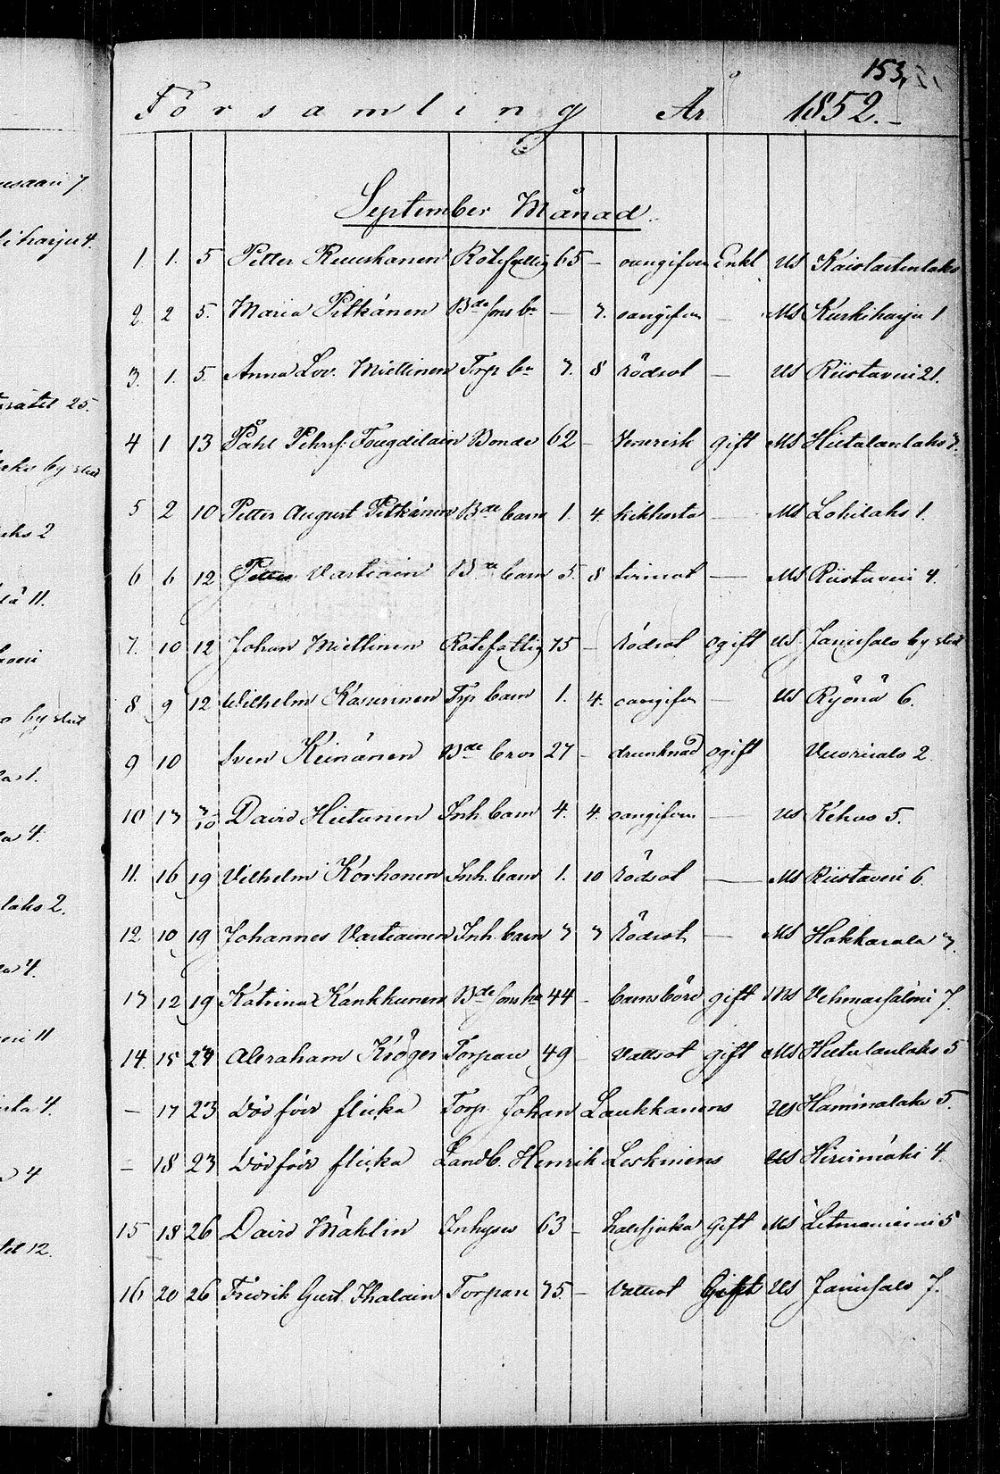 153.
Församling År 1852.
September Månad.
usaari 7
iharju 4.
1. 1. 5 Petter Ruuskanen Rotefattig 65 - oangifven Enkl. US Kaislastenlaks
2. 2 5. Maria Pitkänen Bde sons br - 7. oangifven - MS Kurkiharju 1
3. 1. 5. Anna Lov. Miettinen Torp br 7. 8 rödsot - US Riistaveri 21.
25.
4 1 13 Påhl Pehrs. Fougdilain Bonde 62 - Venerisk gift MS Hietalanlaks 7.
by slut
5 2 10 Petter August Pitkänen Bde barn 1. 4. kikhosta - MS Lohilaks 1.
aks 2
6 6 12 Petter Vartiain Bde barn 5. 8 - MS Riistaveri 4.
11.
7. 10 12 Johan Miettinen Rotefattig 75 - rödsot ogift US Jänissalo by slut
8 9 12 Wilhelm Kasurinen Torp barn 1. 4. oangifven - US Ryönä 6.
by slut
9 10 Sven Keinänen Bde bror 27 - drunknad ogift Vuorisalo 2
10 17 David Hietanen Inh. barn 4. 4. oangifven - US Kehvo 5.
4.
11. 16 19 Vilhelm Korhonen Inh. barn 1. 10 rödsot - MS Riistaveri 6.
laks 2.
12. 10 19 Johannes Vartiainen Inh. barn 7 7 Rödsot - MS Hakkarala 7.
4.
13 12 19 Katrina Kankkunen Bde sons hu 44 - barnsbörd gift MS Vehmassalmi 7.
14. 15 24 Abraham Kröger Torpare 49 - Vattsot gift MS Hietalanlaks 5
11
- 17 23 Dödfödd flicka Torp. Johan Laukkanens US Haminalaks 5.
4.
- 18 23 Dödfödd flicka Landb. Henrik Leskinens US Hirvimäki 4.
4
15 18 26 David Mählin Inhyses 63 - halssjuka gift MS Litmaniemi 5
12.
16 20 26 Fredrik Gust. Ihalain Torpare 75. - Vattsot Gift US Jänissalo 7.